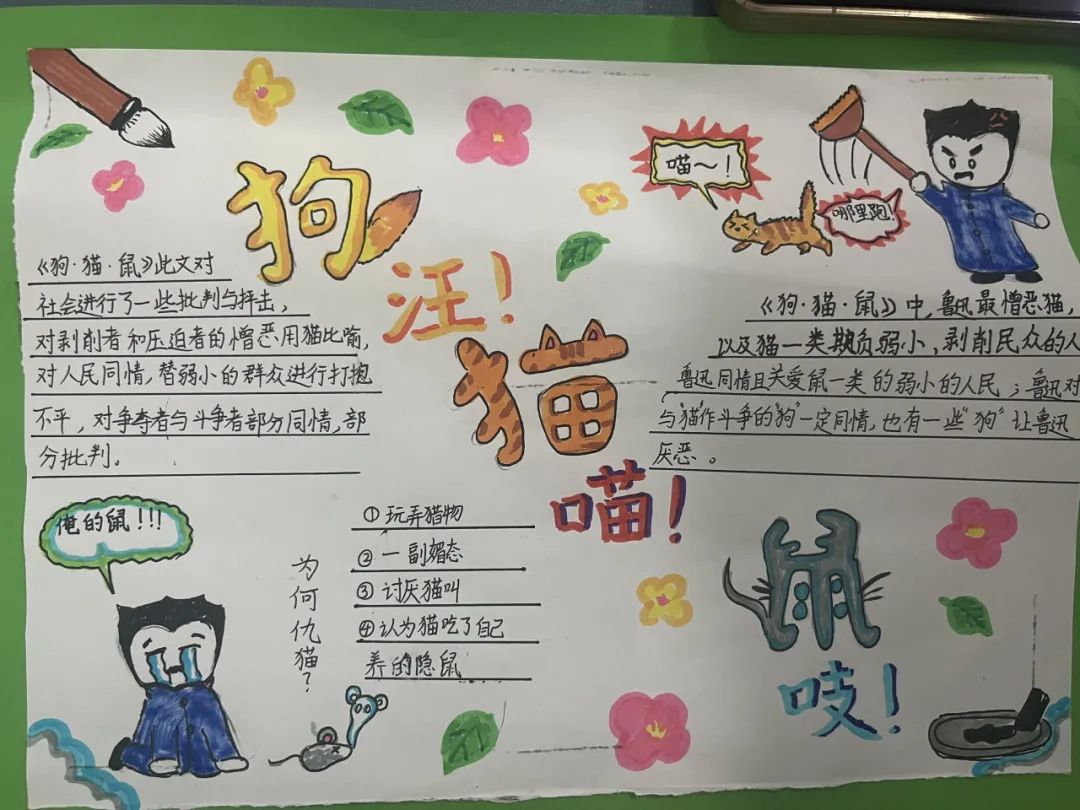 狗
汪！
猫
喵！
鼠
吱！
《狗·猫·鼠》此文对
社会进行了一些批判与抨击，
对剥削者和压迫者的憎恶用猫比喻，
对人民同情，替弱小的群众进行打抱
不平，对争夺者与斗争者部分同情，部
分批判。
喵～！
哪里跑！
《狗·猫·鼠》中，鲁迅最憎恶猫，
以及猫一类欺负弱小、剥削民众的人
鲁迅同情且关爱鼠一类的弱小的人民；鲁迅对
与“猫”作斗争的“狗”一定同情，也有一些“狗”让鲁迅
厌恶。
俺的鼠！！！
为何仇猫？
①玩弄猎物
②一副媚态
③讨厌猫叫
④认为猫吃了自己
养的隐鼠